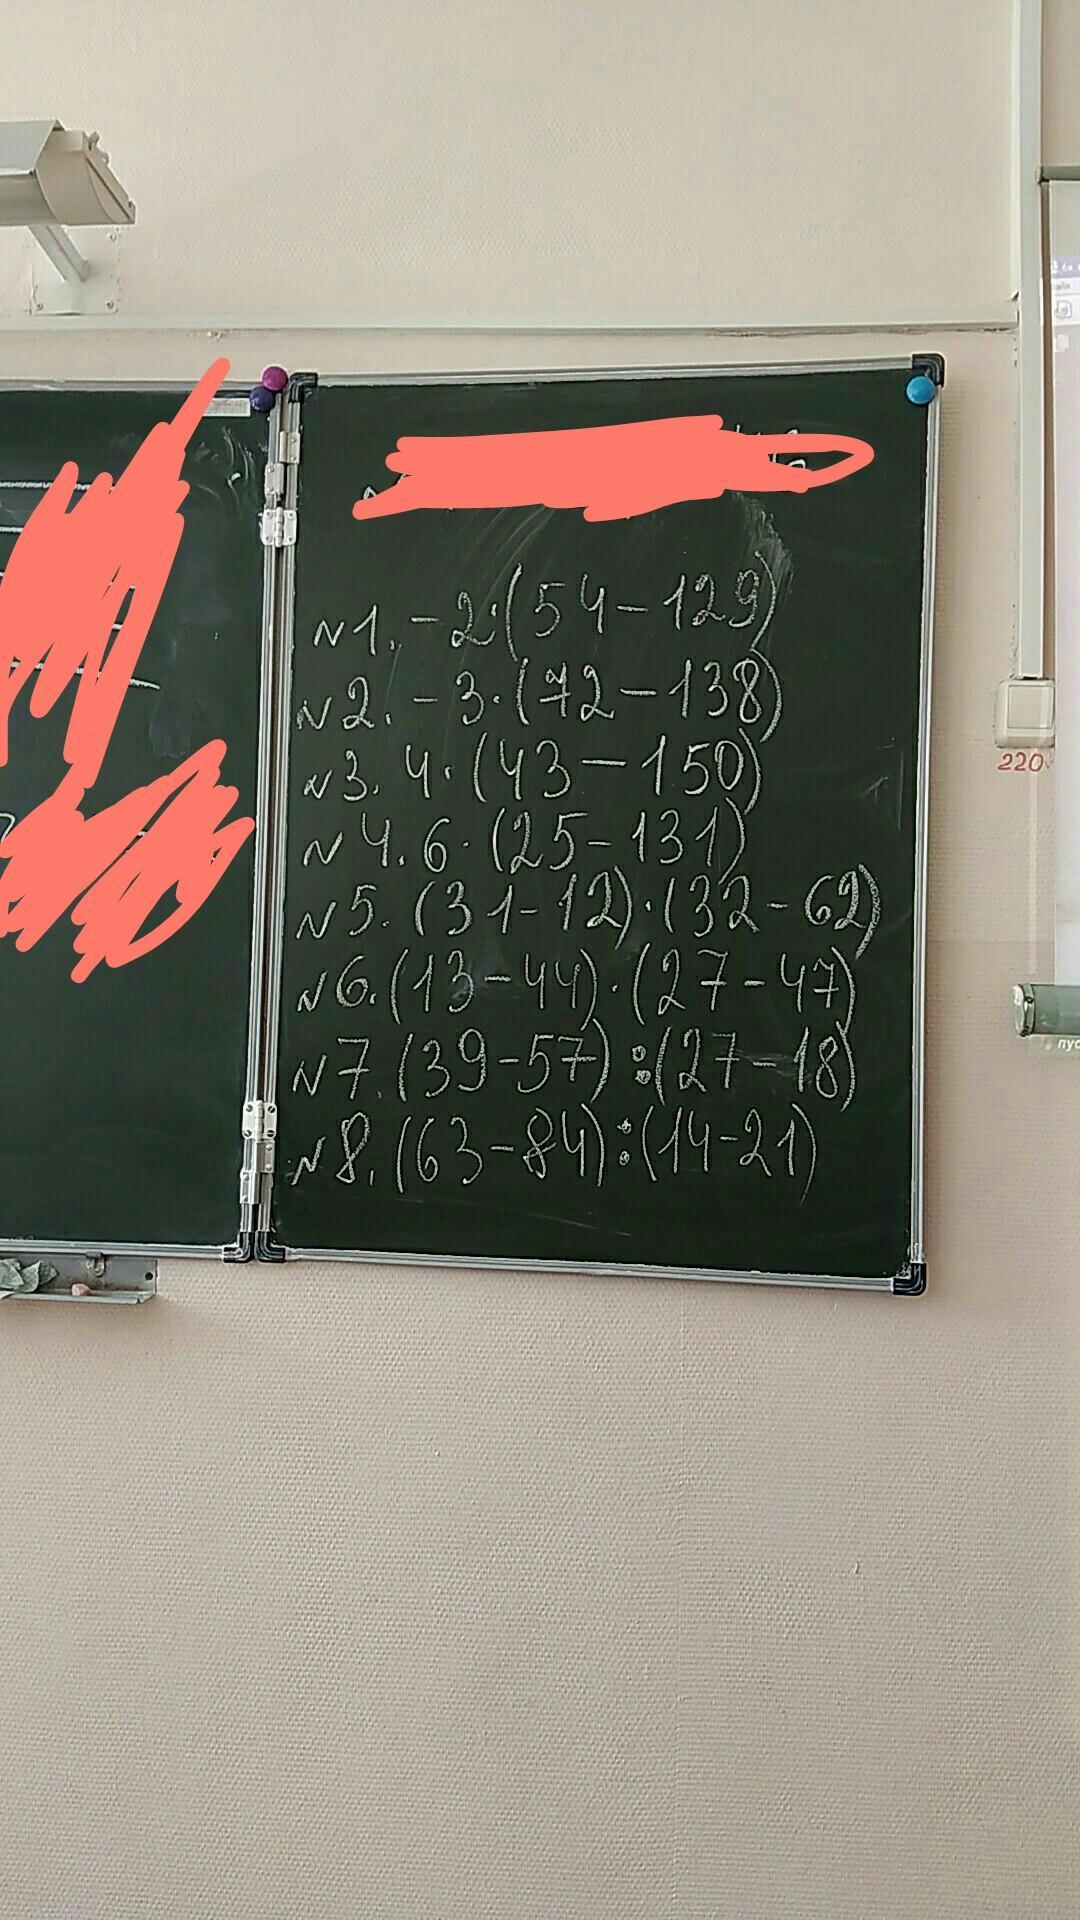 N1. -2·(54-129)
N2. -3·(72-138)
N3. 4·(43-150)
N4. 6·(25-131)
N5. (31-12)·(32-62)
N6. (13-44)·(27-47)
N7. (39-57):(27-18)
N8. (63-84):(14-21)
220
пус